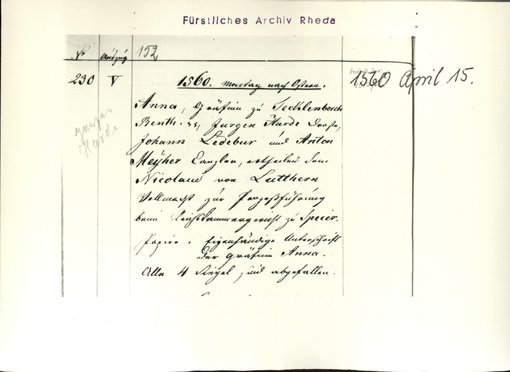 Fürstliches Archiv Rheda
Nr Auszug 152
230 V 1560. Montag nach Ostern. 1560 April 15.
Anna, Gräfin zu Tecklenborch
Benth. Jurgen Harde Droste,
Johann Ledebur und Anton
Meÿher Canzler, ertheilen dem
Nicolaus von Lutthern
Vollmacht zur Prozeßführung
beim Reichskammergericht zu Speier.
Papier. Eigenhändige Unterschrift
der Gräfin Anna.
Alle 4 Siegel sind abgefallen.